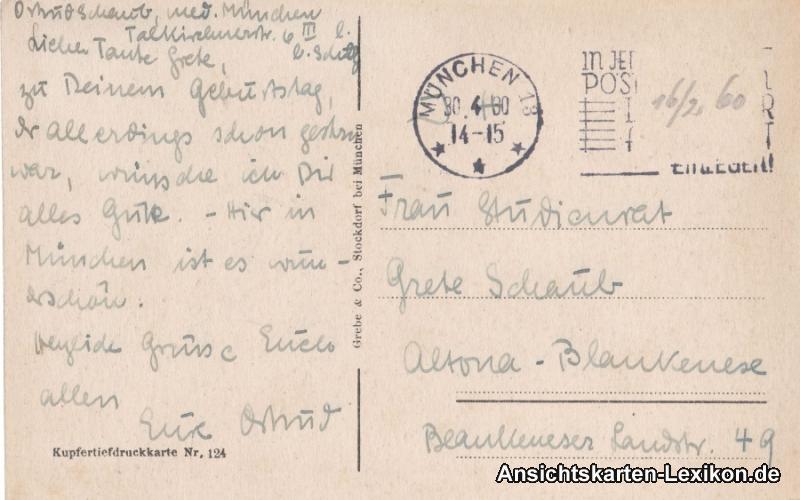 Ortrud Schaub, med. München
Talkirchnerstr. 6 III l.
Liebe Tante Grete, b. Scholz
zu Deinem Geburtstag,
der allerdings schon gestern
war, wünsche ich Dir
alles Gute. - Hier in
München ist es wun-
derschön.
Herzliche Grüsse Euch
allen
Eure Ortrud
Kupfertiefdruckkarte Nr. 124
Grebe & Co., Stockdorf bei München
MÜNCHEN 13
30.4.
14-15
IN JE
POS
16/2, 60
EINLEGEN!
Frau Studienrat
Grete Schaub
Altona - Blankenese
Blankeneser Landstr. 49
Ansichtskarten-Lexikon.de